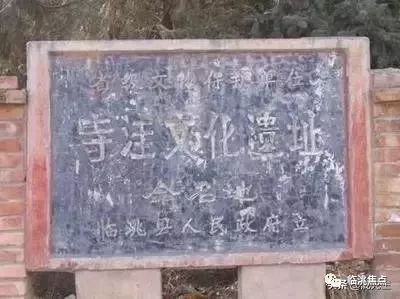 省级文物保护单位
寺洼文化遗址
命名地
临洮县人民政府立
临洮焦点